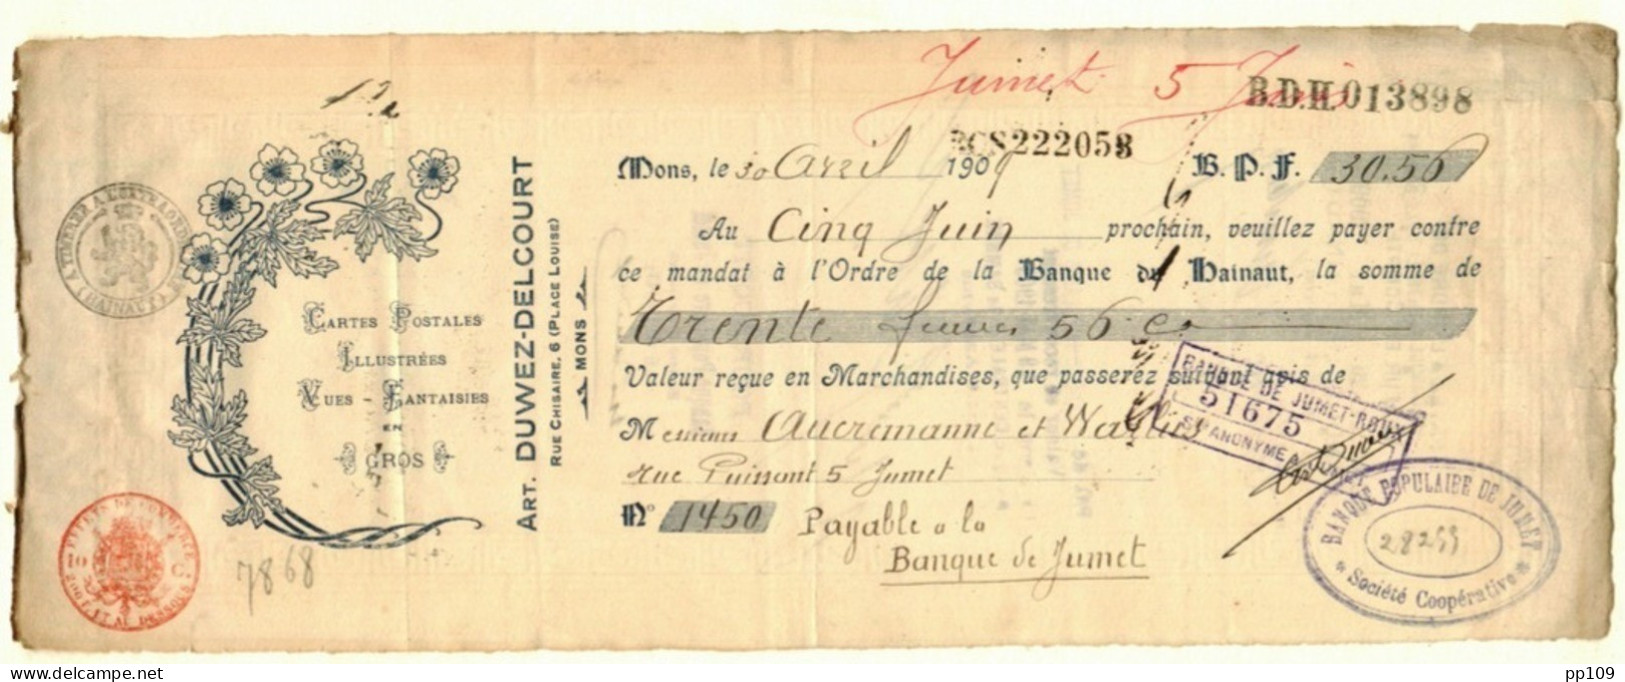 Jumet 5 Juin
B.D.H.013898
222053
Mons, le 30 Avril 1909 B.P.F. 30.56
Au Cinq Juin prochain, veuillez payer contre
ce mandat à l'Ordre de la Banque du Hainaut, la somme de
Trente francs 56 Cs
Valeur reçue en Marchandises, que passerez suivant avis de
Messieurs Aucremanne et
rue Puissant 5 Jumet
No 1450 Payable a la
Banque de Jumet
A L'EXTRAORDINAIRE
(HAINAUT)
CARTES POSTALES
ILLUSTRÉES
VUES - FANTAISIES
EN
GROS
ART. DUWEZ-DELCOURT
RUE CHISAIRE, 6 (PLACE LOUISE)
MONS
EFFETS DE COMMERCE
10 C
200 F. ET AU DESSOUS
7868
BANQUE DE JUMET-ROUX
51675
Sté ANONYME
BANQUE POPULAIRE DE JUMET
28255
* Société Coopérative *
pp109